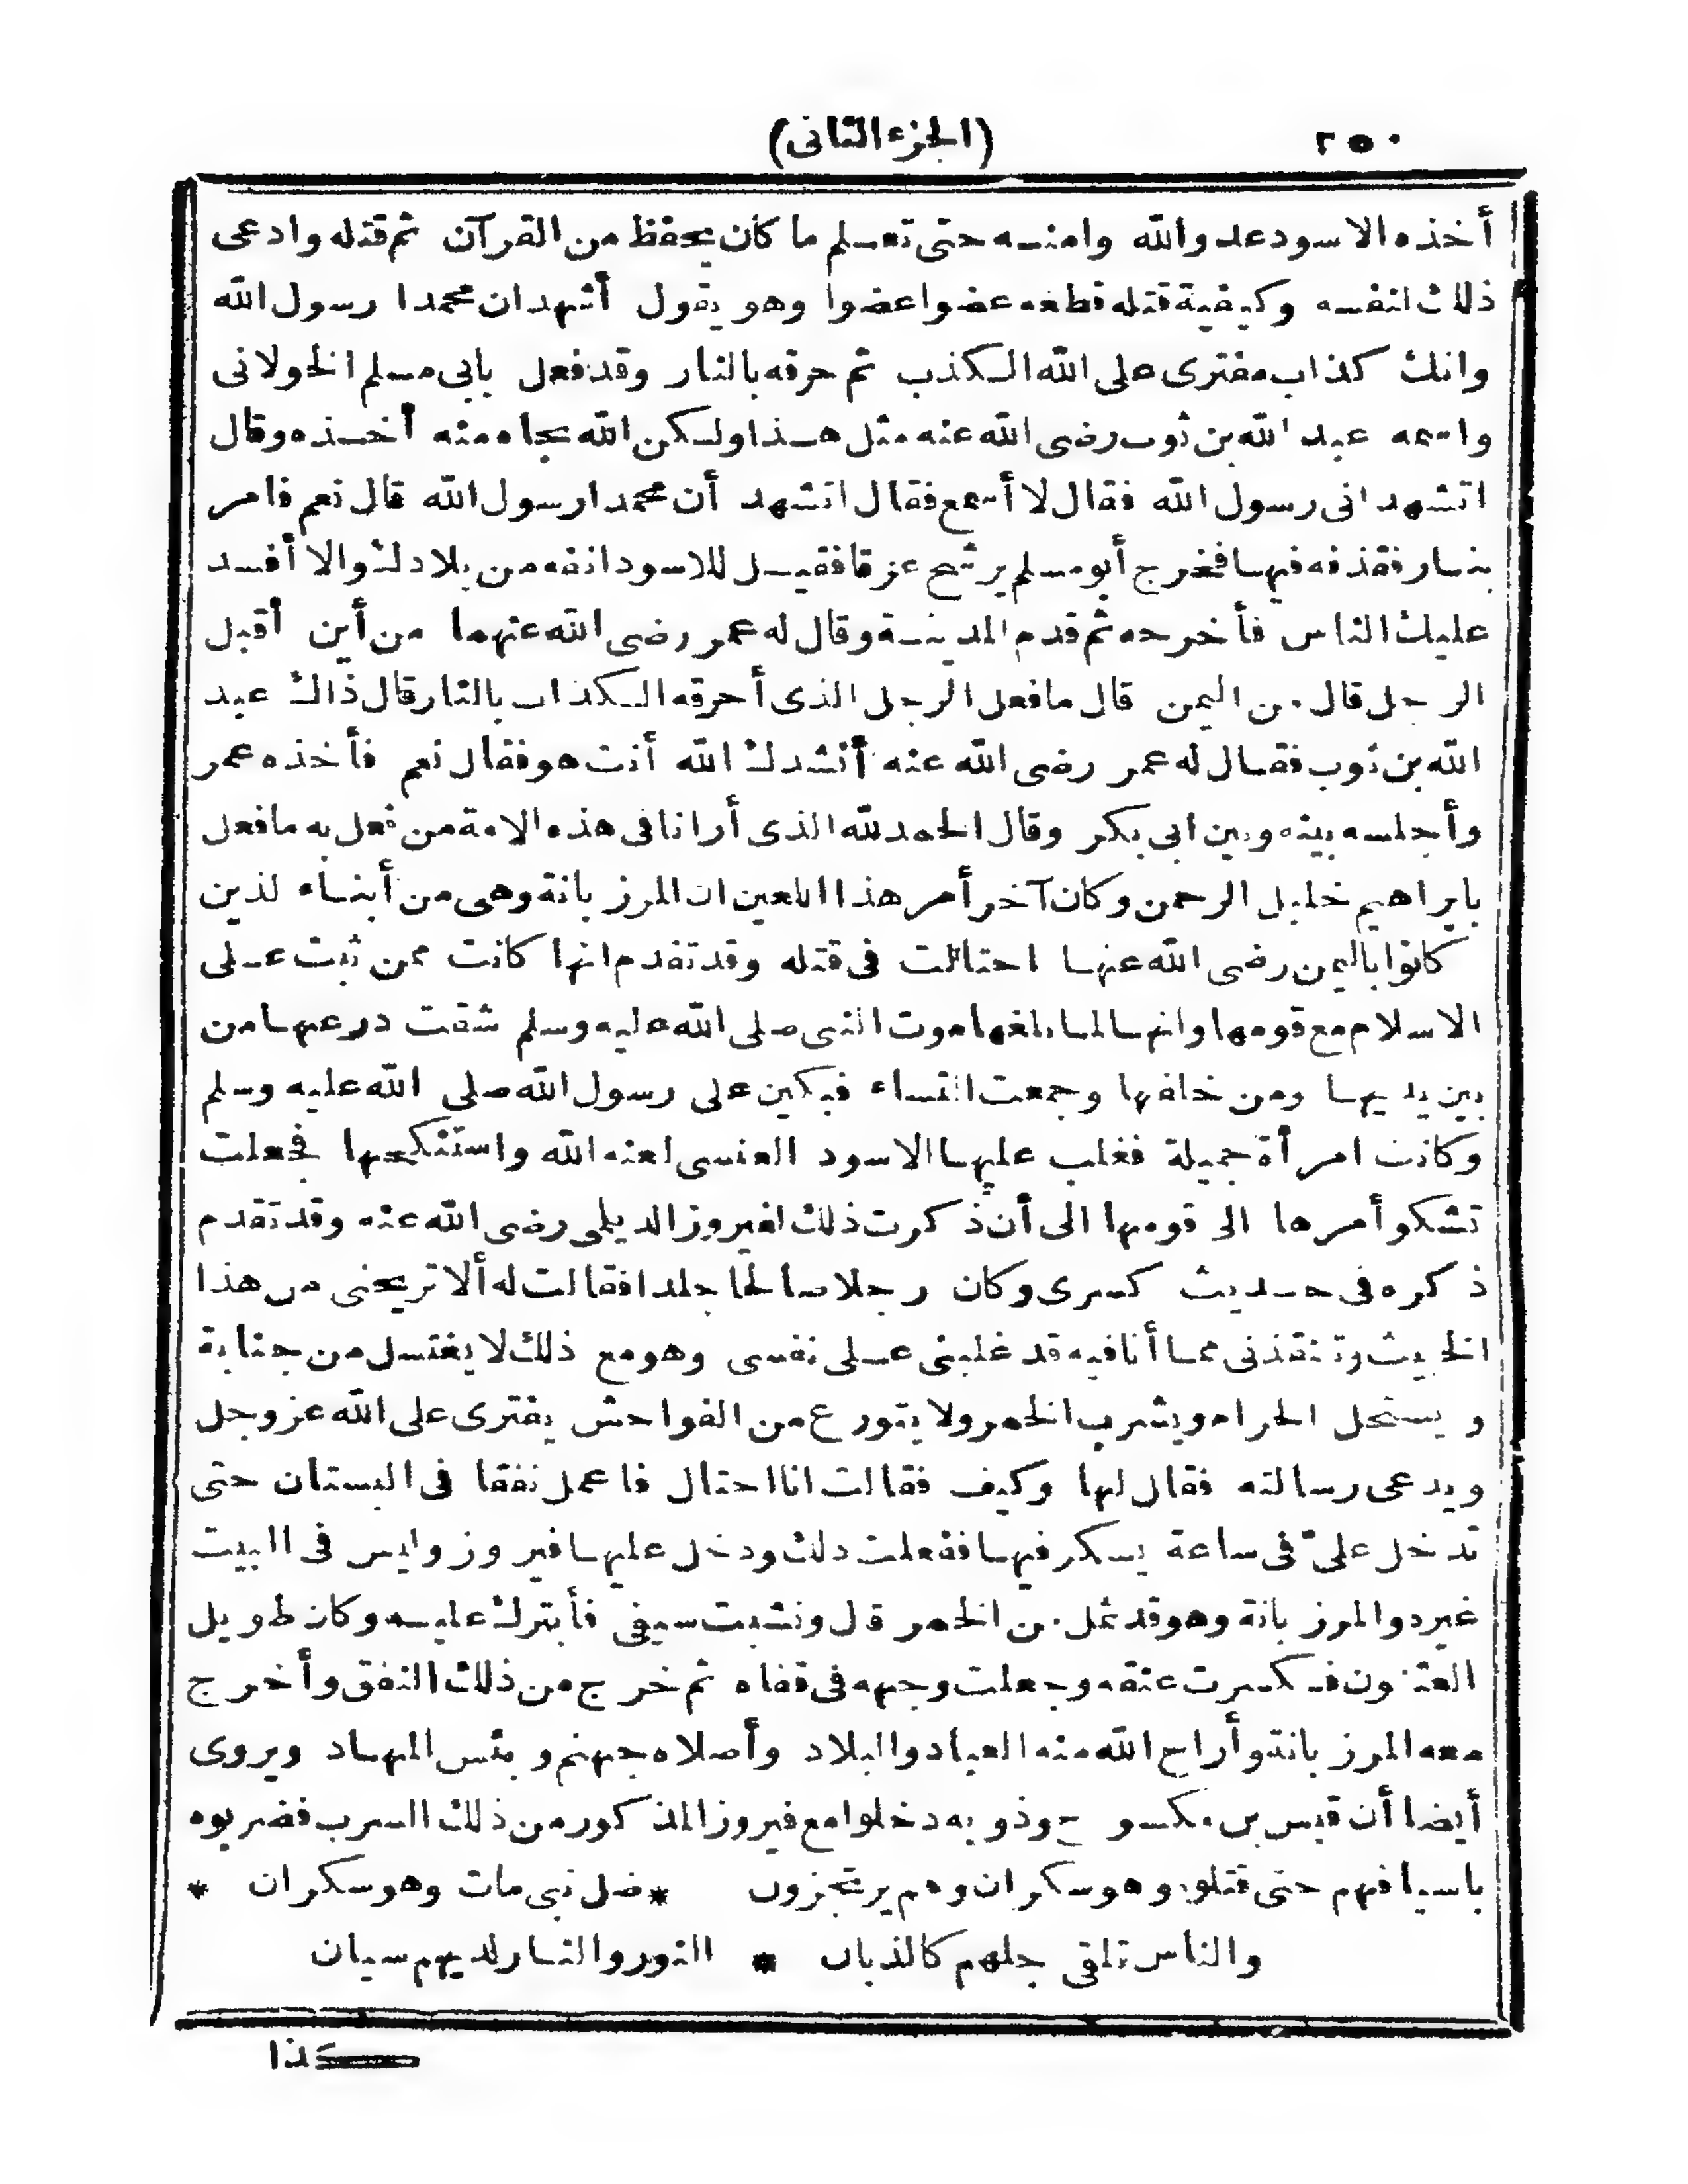 ٢٥٠
(الجزء الثانى)
أخذه الاسود عدو والله وامنه حتى تعلم ما كان يحفظ من القرآن ثم قتله وادعى
ذلك لنفسه وكيفية قتله قطعه عضوا عضوا وهو يقول أشهد ان محمدا رسول الله
وانك كذاب مفترى على الله الكذب ثم حرقه بالنار وقد فعل بابى مسلم الخولانى
واسمه عبد الله بن ثوب رضى الله عنه مثل هذا ولكن الله نجاه منه أخذه وقال
اتشهد انى رسول الله فقال لا أسمع فقال اتشهد أن محمدا رسول الله قال نعم فامر
بنار فقذفه فيها فخرج أبو مسلم يرشح عرقا فقيل للاسود انفه من بلادك والا أفسد
عليك الناس فأخرجه ثم قدم المدينة وقال له عمر رضى الله عنهما من أين أقبل
الرجل قال من اليمن قال ما فعل الرجل الذى أحرقه الكذاب بالنار قال ذاك عبد
الله بن ثوب فقال له عمر رضى الله عنه أنشدك الله أنت هو فقال نعم فأخذه عمر
وأجلسه بينه وبين ابى بكر وقال الحمد لله الذى أرانا فى هذه الامة من فعل به ما فعل
بابراهيم خليل الرحمن وكان آخر أمر هذا اللعين ان المرزبانة وهى من أبناء لذين
كانوا باليمن رضى الله عنها احتالت فى قتله وقد تقدم انها كانت ممن ثبت على
الاسلام مع قومها وانها لما بلغها موت النبى صلى الله عليه وسلم شقت درعها من
بين يديها ومن خلفها وجمعت النساء فبكين على رسول الله صلى الله عليه وسلم
وكانت امرأة جميلة فغلب عليها الاسود العنسى لعنه الله واستنكحها فجعلت
تشكو أمرها الى قومها الى أن ذكرت ذلك لفيروز الديلمى رضى الله عنه وقد تقدم
ذكره فى حديث كسرى وكان رجلا صالحا جلدا فقالت له ألا تريحنى من هذا
الخبيث وتنقذنى مما أنا فيه قد غلبنى على نفسى وهو مع ذلك لا يغتسل من جنابة
ويستحل الحرام ويشرب الخمر ولا يتورع من الفواحش يفترى على الله عز وجل
ويدعى رسالته فقال لها وكيف فقالت انا احتال فاعمل نفقا فى البستان حتى
تدخل علىّ فى ساعة يسكر فيها ففعلت ذلك ودخل عليها فيروز وليس فى البيت
غيره والمرزبانة وهو قد ثمل من الخمر قال ونشبت سيفى فأبترك عليه وكان طويل
العثنون فكسرت عنقه وجعلت وجهه فى قفاه ثم خرج من ذلك النفق وأخرج
معه المرزبانة وأراح الله منه العباد والبلاد وأصلاه جهنم وبئس المهاد ويروى
أيضا أن قيس بن مكسوح وذويه دخلوا مع فيروز المذكور من ذلك السرب فضربوه
باسيافهم حتى قتلوه وهو سكران وهم يرتجزون * ضل نبى مات وهو سكران *
والناس تلقى جلهم كالذبان * النور والنار لديهم سيان
كذا